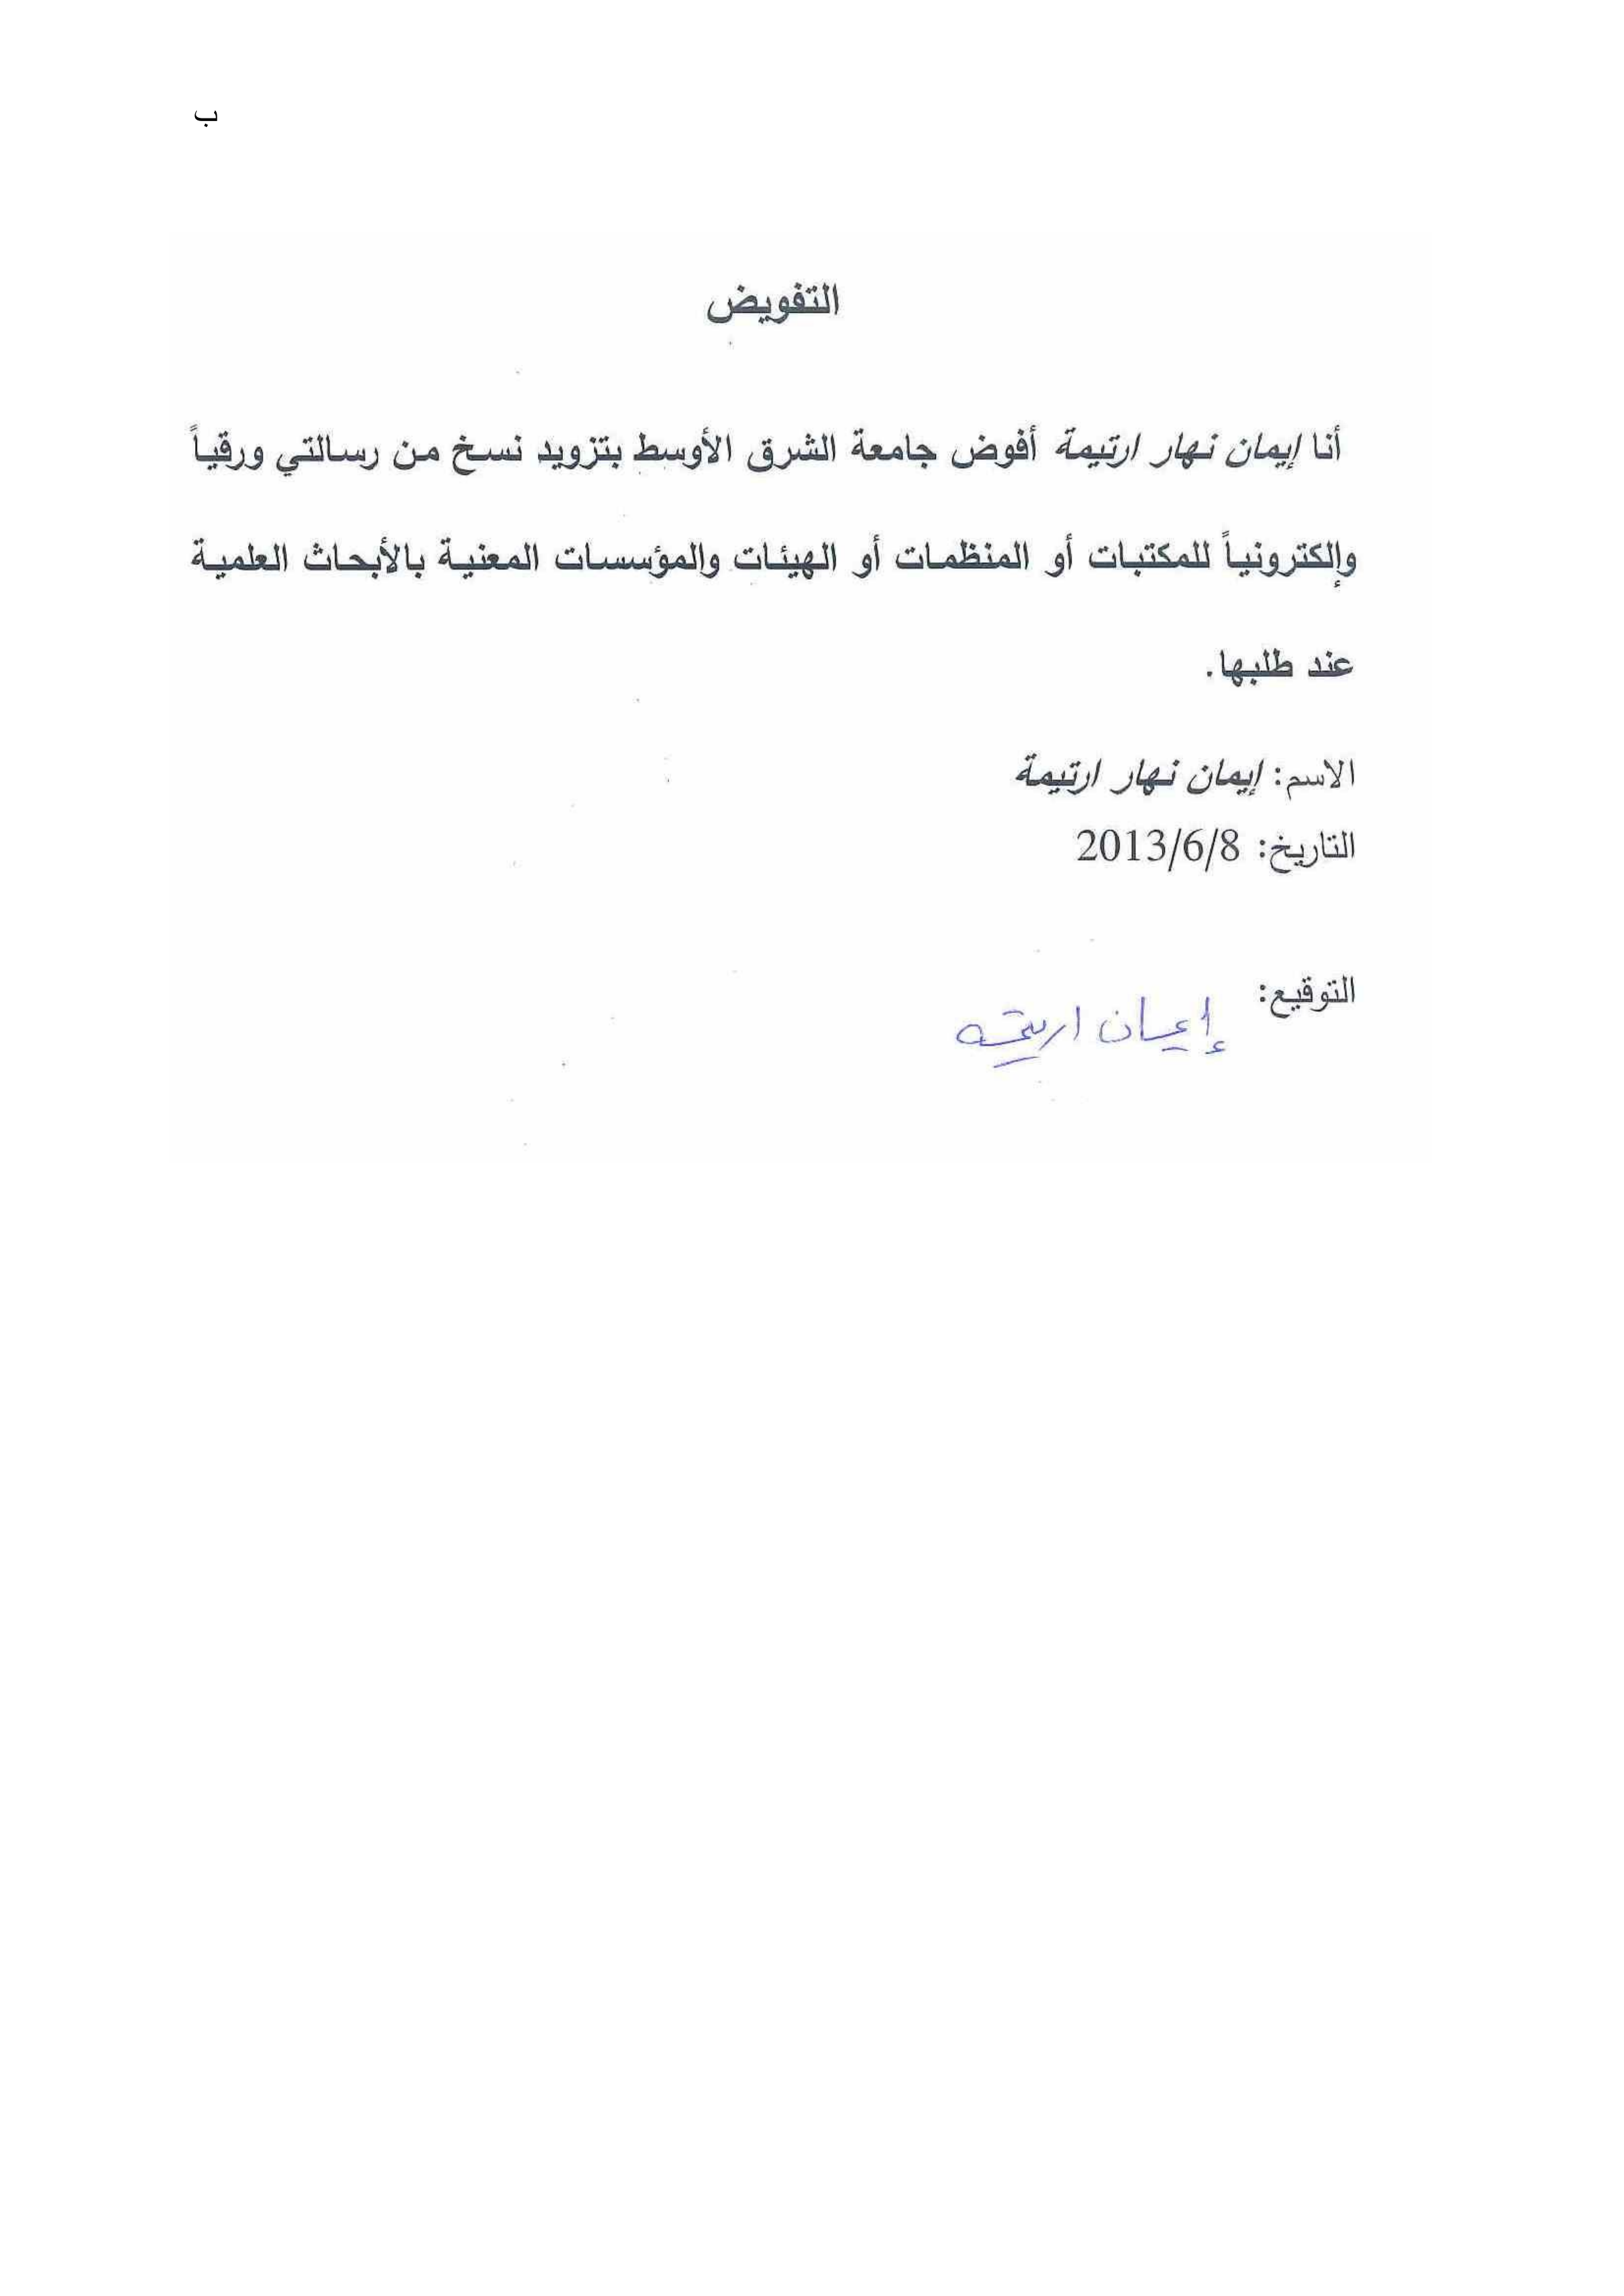 ب
التفويض
أنا إيمان نهار ارتيمة أفوض جامعة الشرق الأوسط بتزويد نسخ من رسالتي ورقياً
وإلكترونياً للمكتبات أو المنظمات أو الهيئات والمؤسسات المعنية بالأبحاث العلمية
عند طلبها.
الاسم: إيمان نهار ارتيمة
التاريخ: 2013/6/8
التوقيع:
إيمان ارتيمه